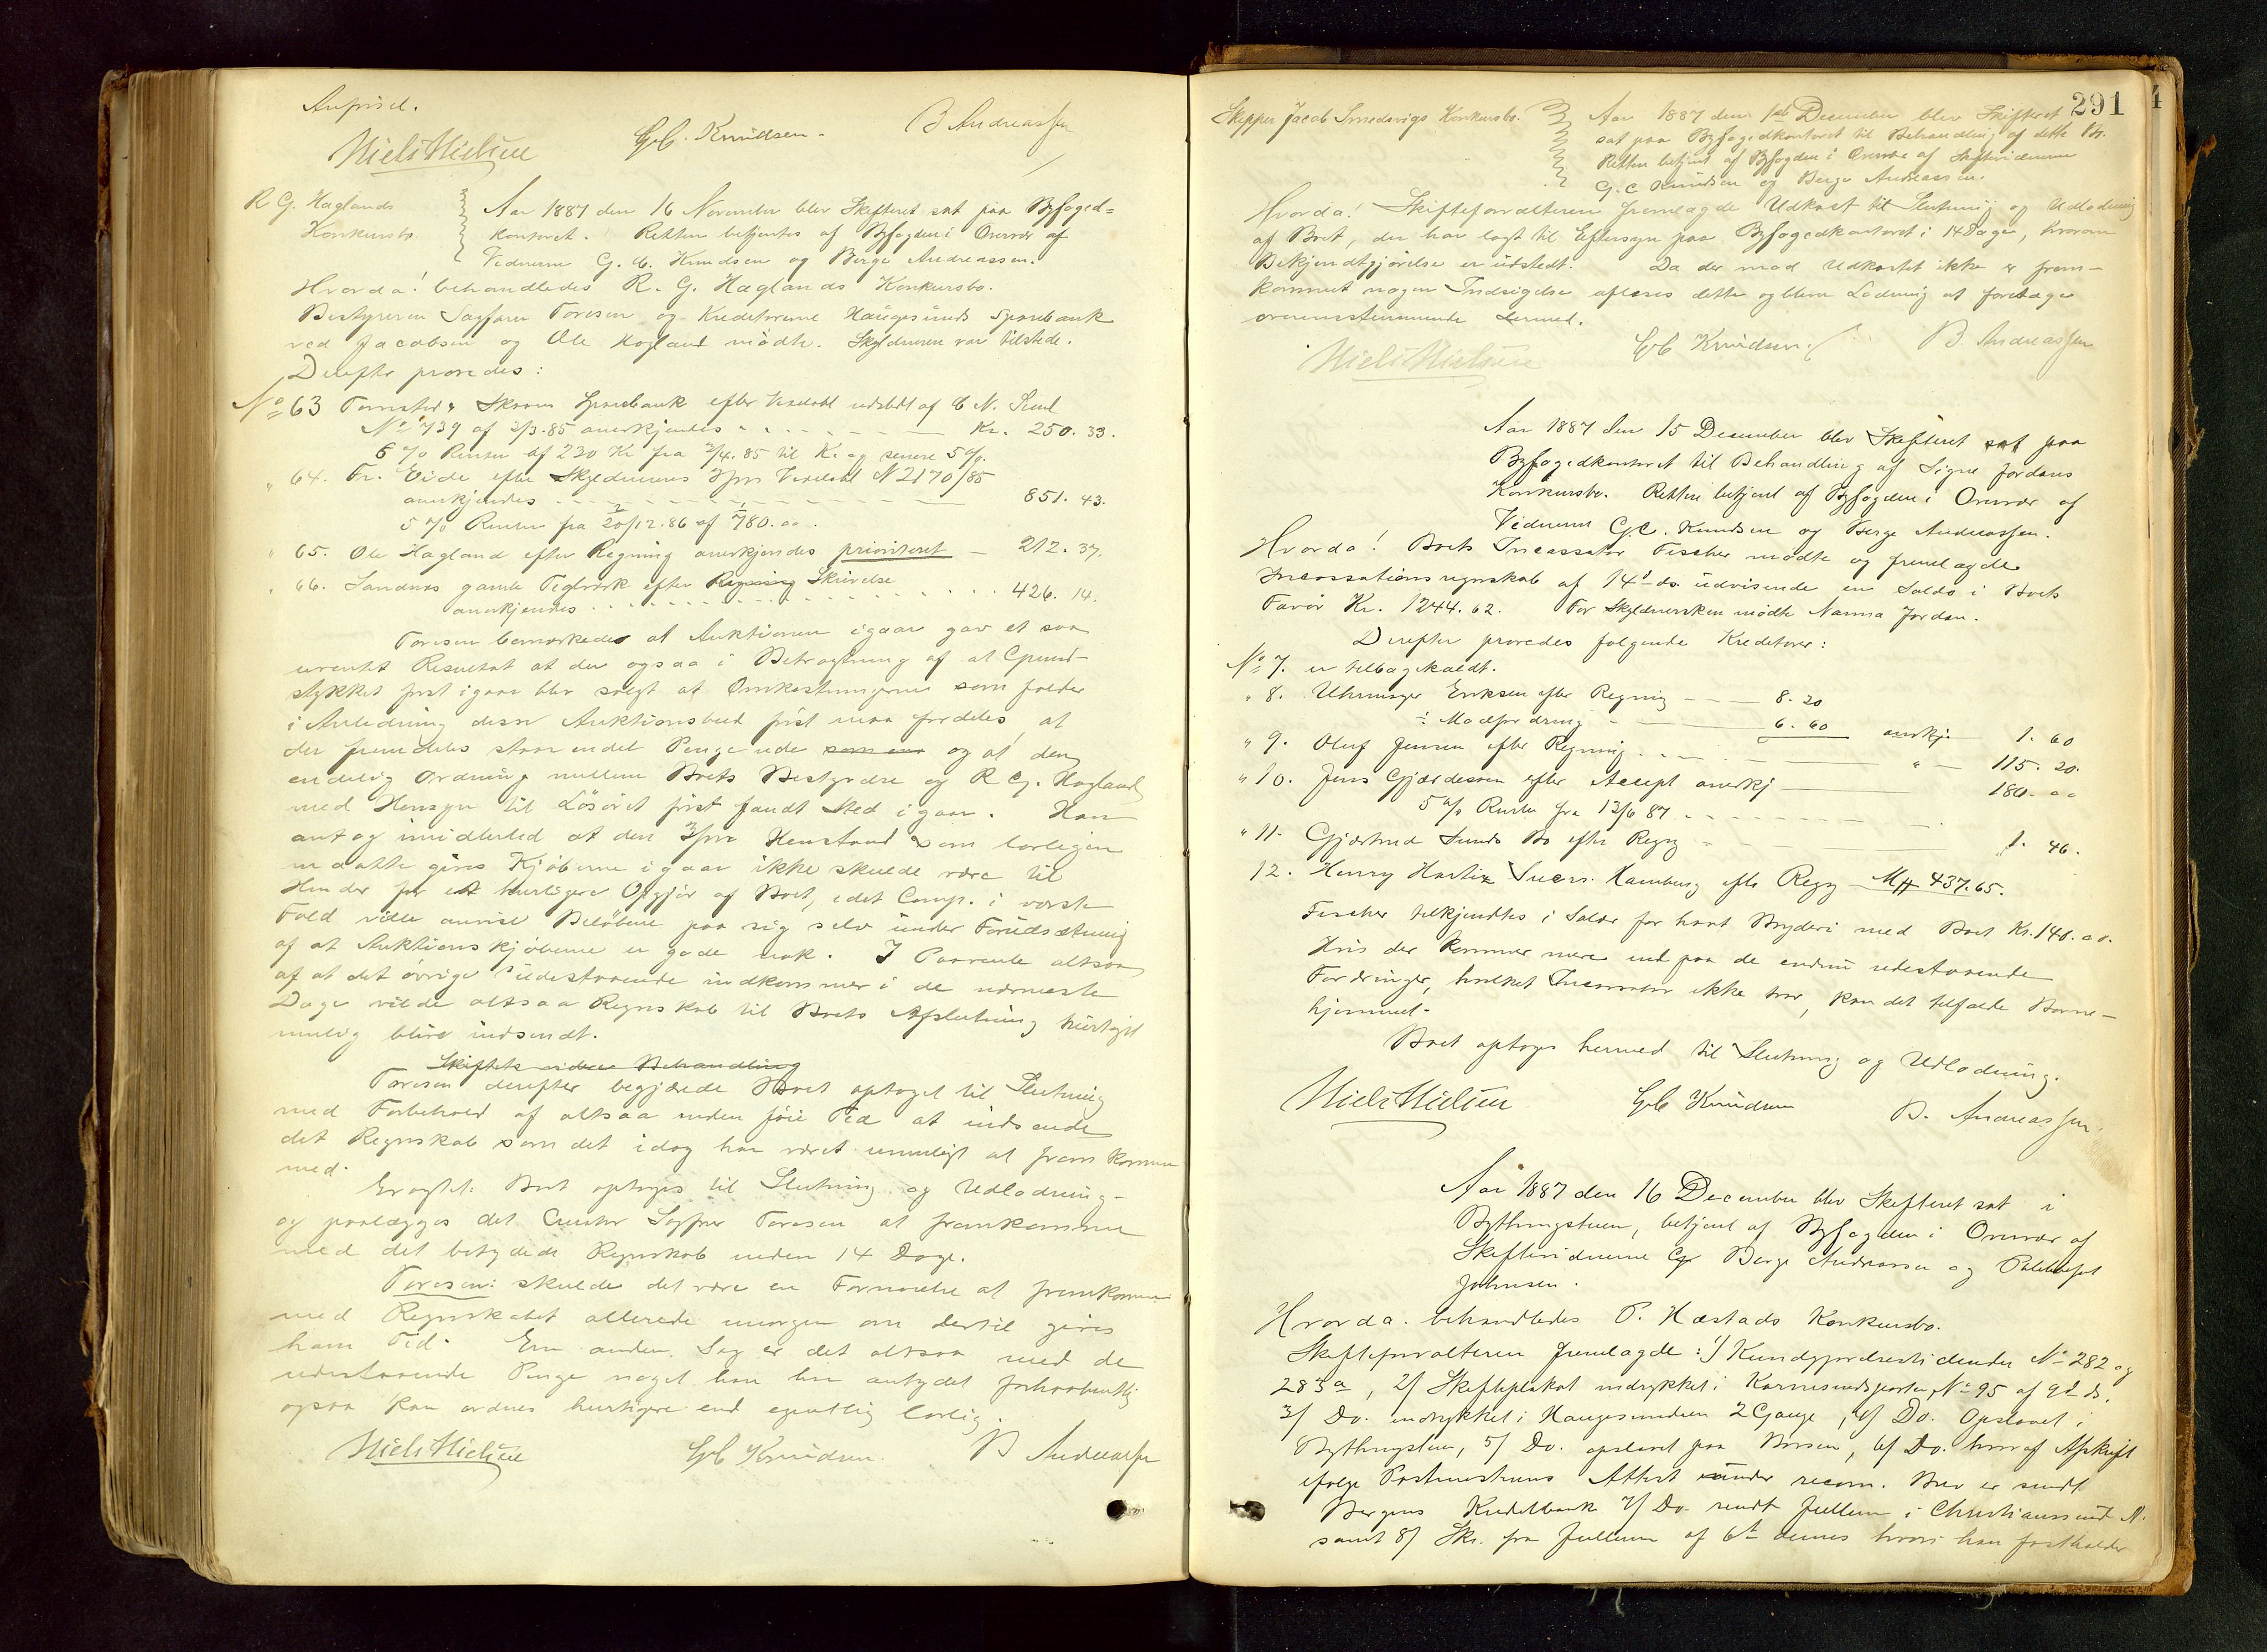 Anført.
Niels Nielsen G. C. Knudsen. B Andreassen
R G. Haglands
Konkursbo.
Aar 1887 den 16 November blev Skifteret sat paa Byfoged=
kontoret. Retten betjentes af Byfogden i Overvær af
Vidnerne G. C. Knudsen og Berge Andreassen.
Hvorda! behandledes R. G. Haglands Konkursbo.
Bestyreren Sagfører Toresen og Kreditorerne Haugesunds Sparebank
ved Jacobsen og Ole Hagland mødte. Skyldneren var tilstede.
Derefter prøvedes:
No 63 Skaare Sparebank efter Vexelobl udstedt af
No 739 af 2/3.85 anerkjendes Kr. 250.33.
6 % Renter af 230 Kr fra 2/4.85 til K. og senere 5 %.
" 64. Fr. Eide efter Skyldnerens Vexelobl N 2170/85
anerkjendes 851.43.
5 % Renter fra 20/12.86 af 780.00.
" 65. Ole Hagland efter Regning anerkjendes prioriteret — 212.37.
" 66. Sandnæs gamle Teglværk efter Regning Skrivelse
anerkjendes 426.14.
Toresen bemærkede at Auktionen igaar gav et saa
uventet Resultat at der ogsaa i Betragtning af at Grund-
stykket først igaar blev solgt at Omkostningerne som falder
i Anledning disse Auktionsbud først maa fordeles, at
der fremdeles staar endel Penge ude som en og at den
endelig Ordning mellem Boets Bestyrelse og R G. Hagland
med Hensyn til Løsøret først fandt Sted igaar. Han
antog imidlertid at den 3/m Henstand som lovligen
maatte gives Kjøberne igaar ikke skulde være til
Hinder for et hurtigere Opgjør af Boet, idet Comp. i værste
Fald vilde anvise Beløbene paa sig selv under Forudsætning
af at Auktionskjøberne er gode nok. I Paavente altsaa
af at det øvrige udestaaende indkommer i de nærmeste
Dage vilde altsaa Regnskab til Boets Afslutning hurtigst
mulig blive indsendt.
Skiftets videre Behandling
Toresen derefter begjærede Boet optaget til Slutning
med Forbehold af altsaa inden føie Tid at indsende
det Regnskab som det idag har været umuligt at fremkomme
med.
Eragtet: Boet optages til Slutning og Udlodning –
og paalægges det Curator Sagfører Toresen at fremkomme
med det betydede Regnskab inden 14 Dage.
Toresen: skulde det være en Fornøielse at fremkomme
med Regnskabet allerede imorgen om dertil gives
ham Tid. En anden Sag er det altsaa med de
udestaaende Penge noget han har antydet forhaabentlig
ogsaa kan ordnes hurtigere end egentlig lovlig.
Niels Nielsen G C Knudsen. B Andreassen
291
Skipper Jacob Smedsvigs Konkursbo.
Aar 1887 den 1ste December blev Skifteret
sat paa Byfogedkontoret til Behandling af dette Bo.
Retten betjent af Byfogden i Overvær af Skiftevidnerne
G. C Knudsen og Berge Andreassen.
Hvorda! Skifteforvalteren fremlagde Udkast til Slutning og Udlodning
af Boet, der har lagt til Eftersyn paa Byfogedkontoret i 14 Dage, hvorom
Bekjendtgjørelse er udstedt. Da der mod Udkastet ikke er frem-
kommet nogen Indsigelse aflæses dette og blev Lodning at foretage
overensstemmende dermed.
Niels Nielsen G C Knudsen. B. Andreassen
Aar 1887 den 15 December blev Skifteret sat paa
Byfogedkontoret til Behandling af Signe Jordans
Konkursbo. Retten betjent af Byfogden i Overvær af
Vidnerne G.C. Knudsen og Berge Andreassen.
Hvorda! Boets Incassator Fischer mødte og fremlagde
Incassationsregnskab af 14d ds. udvisende en Saldo i Boets
Favør Kr. 1244.62. For Skyldnersken mødte Nanna Jordan.
Derefter prøvedes følgende Kreditorer:
No 7. er tilbagekaldt.
" 8. Uhrmager Eriksen efter Regning — 8.20
÷ Modfordring 6.60 anerkj — 1.60
" 9. Oluf Jensen efter Regning " — 115.20.
" 10. Jens Gjærdesen efter Accept anerkj — 180.00
5 % Renter fra 13/6 87
" 11. Gjærtrud Bo efter Regng — 1.46.
12. Henry Hamburg efter Regng — Mk 437.65.
Fischer tilkjendtes i Salær for havt Bryderi med Boet Kr. 140.00.
Hvis der kommer mere ind paa de endnu udestaaende
Fordringer, hvilket Incassator ikke tror, kan det tilfalde Børne-
hjemmet.
Boet optages hermed til Slutning og Udlodning.
Niels Nielsen G C Knudsen B. Andreassen.
Aar 1887 den 16 December blev Skifteret sat i
Bythingstuen, betjent af Byfogden i Overvær af
Skiftevidnerne G Berge Andreassen og
Johnsen.
Hvorda. behandledes P. Hæstads Konkursbo.
Skifteforvalteren fremlagde: 1/ Kundgjørelsestidender No 282 og
283a, 2/ Skifteplakat indrykket i Karmsundsposten No 95 af 9d ds.
3/ Do. indrykket i Haugesunderen 2 Gange, 4/ Do. Opslaaet i
Bythingstuen, 5/ Do. opslaaet paa Børsen, 6/ Do. hvoraf Afskrift
ifølge Postmesterens Attest under recom. Brev er sendt
Bergens Kreditbank 7/ Do. sendt Jullum i Christianssund N.
samt 8/ Skr. fra Jullum af 6te dennes hvori han fastholder